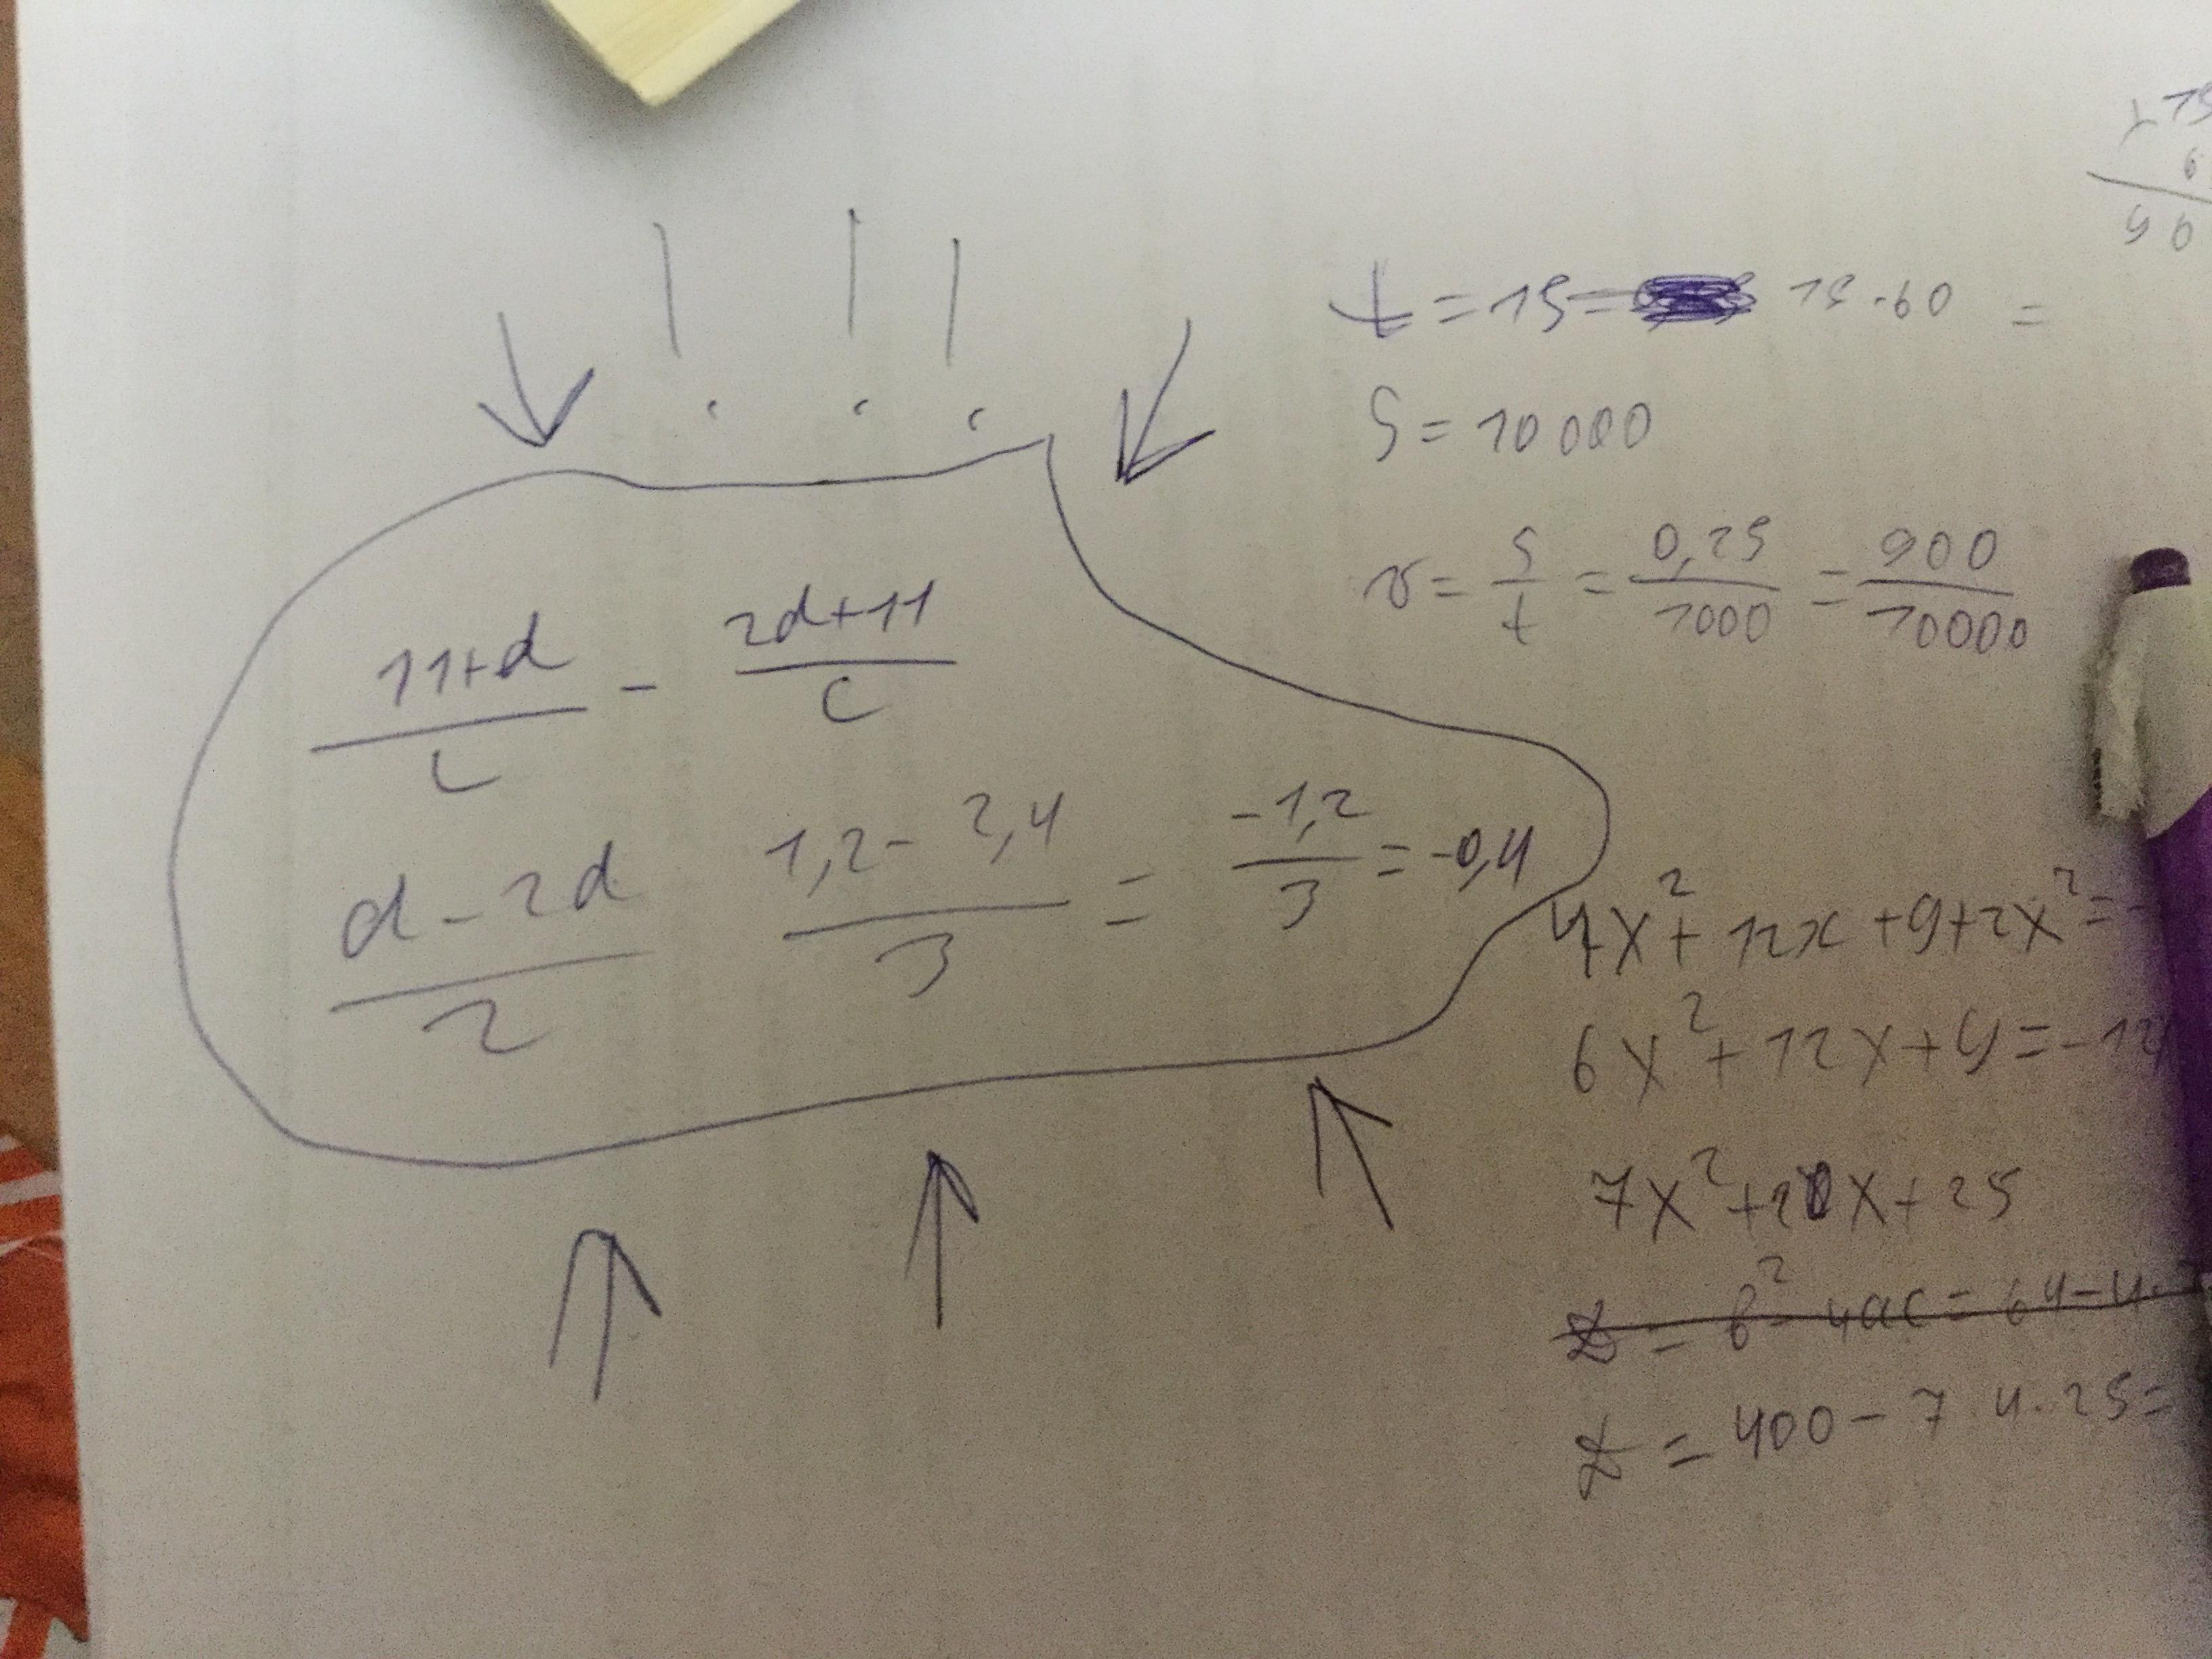 ! ! !
(11+d)/c - (2d+11)/c
(d-2d)/2 (1,2-2,4)/3 = (-1,2)/3 = -0,4
t = 15 = 15·60 =
S = 10000
v = S/t = 0,25/1000 = 900/10000
15
6
90
4x²+12x+9+2x²=-
6x²+12x+9=-12
7x²+20x+25
D = b²-4ac = 64-4·7
D = 400-7·4·25=